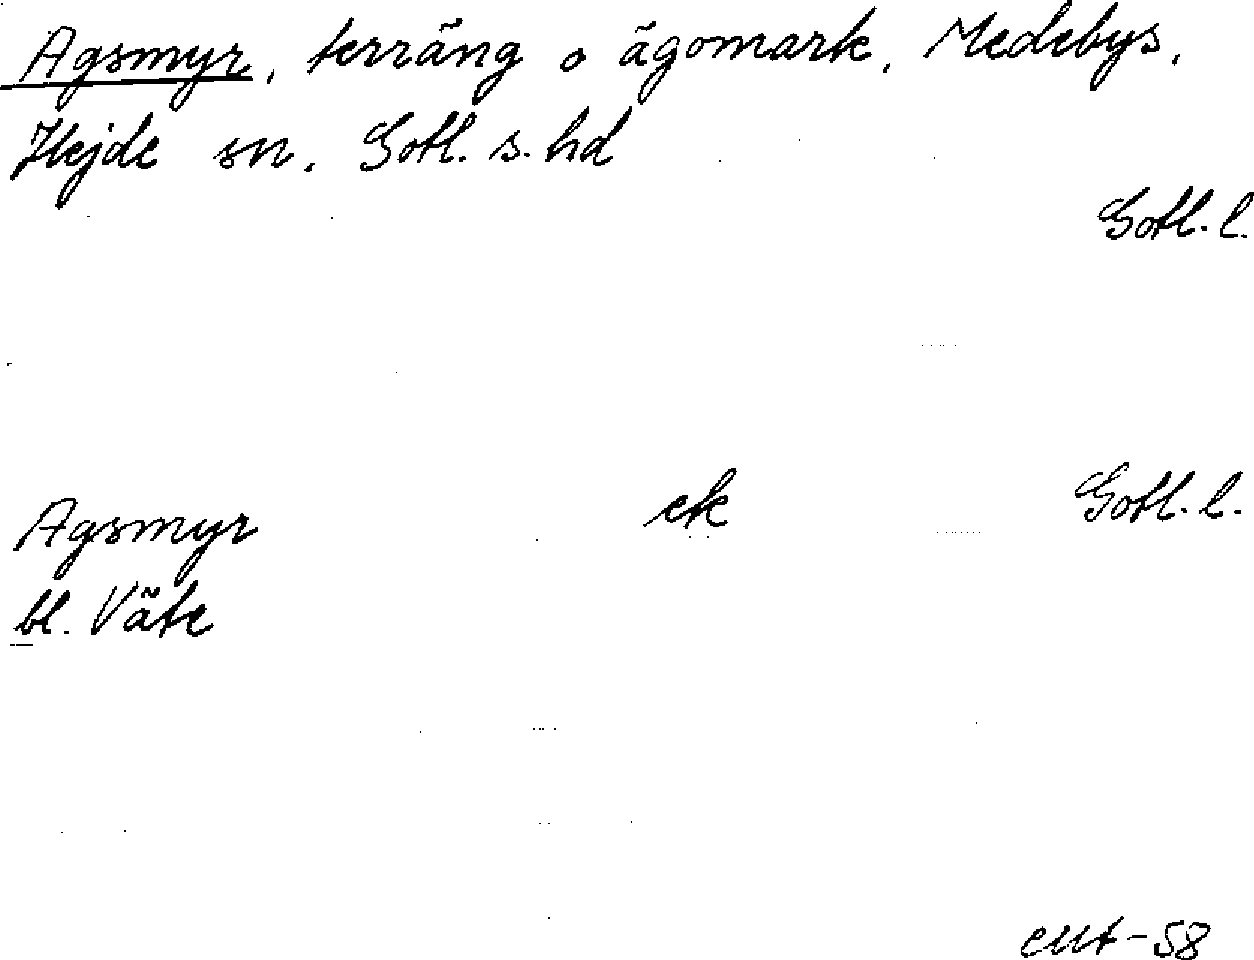 Agsmyr, terräng o ägomark, Medebys,
Hejde sn, Gotl. s. hd
Gotl. l.
Agsmyr ek Gotl. l.
bl. Väte
EMt-58